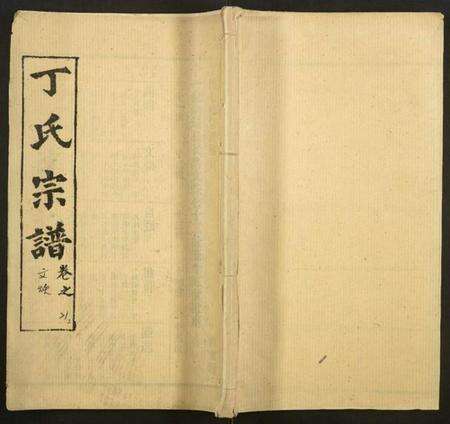 丁氏宗譜
卷之
文煥